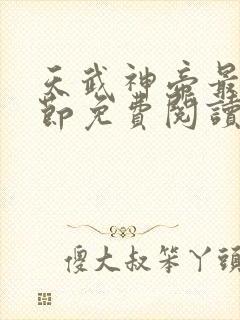 天武神帝最
節免費閱讀
傻大叔笨丫頭